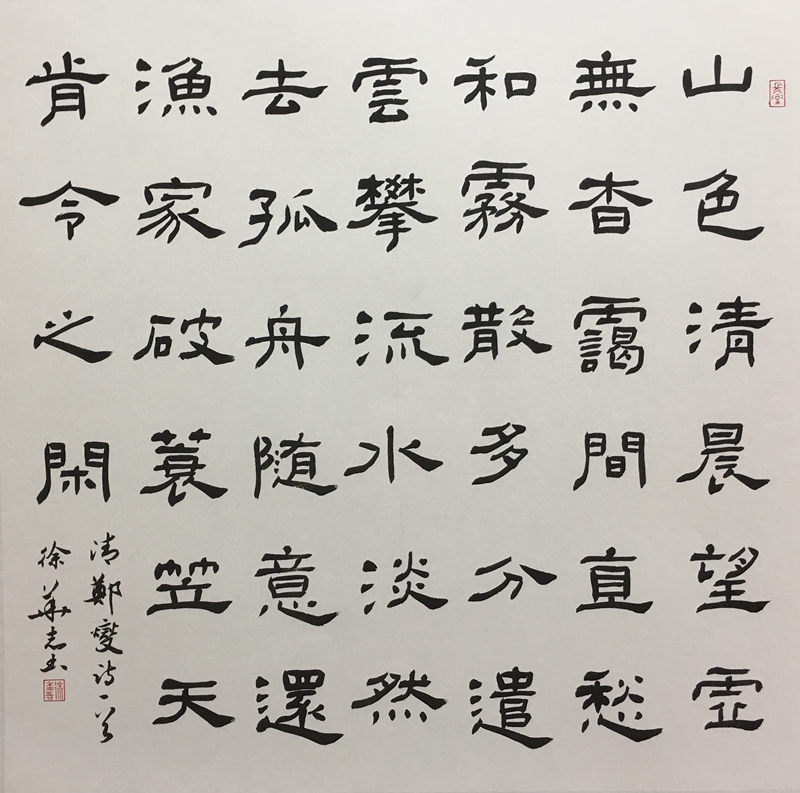 山色清晨望虛
無杳靄間直愁
和霧散多分遣
雲攀流水淡然
去孤舟随意還
漁家破蓑笠天
肯令之閑
清鄭燮诗一首
徐華志书